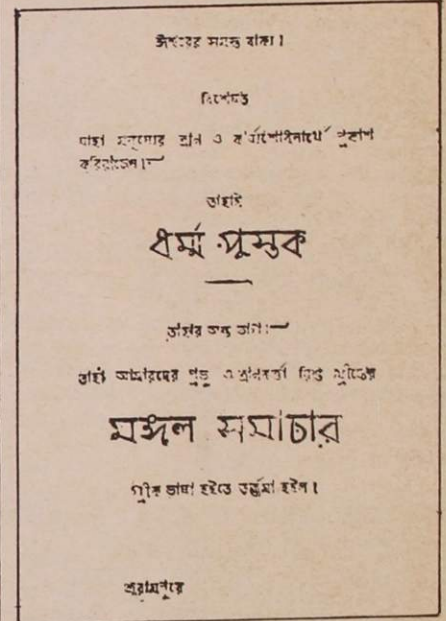 ঈশ্বরের সমস্ত বাক্য।
বিশেষত
যাহা মনুষ্যের ত্রাণ ও কার্য্যশোধনার্থে প্রকাশ
করিয়াছেন।—
তাহাই
ধর্ম্ম পুস্তক
তাহার অন্ত ভাগ।—
তাহা আমারদের প্রভু ও ত্রাণকর্ত্তা য়িশু খ্রীষ্টের
মঙ্গল সমাচার
গ্রীক ভাষা হইতে তর্জ্জমা হইল।
শ্রীরামপুরে